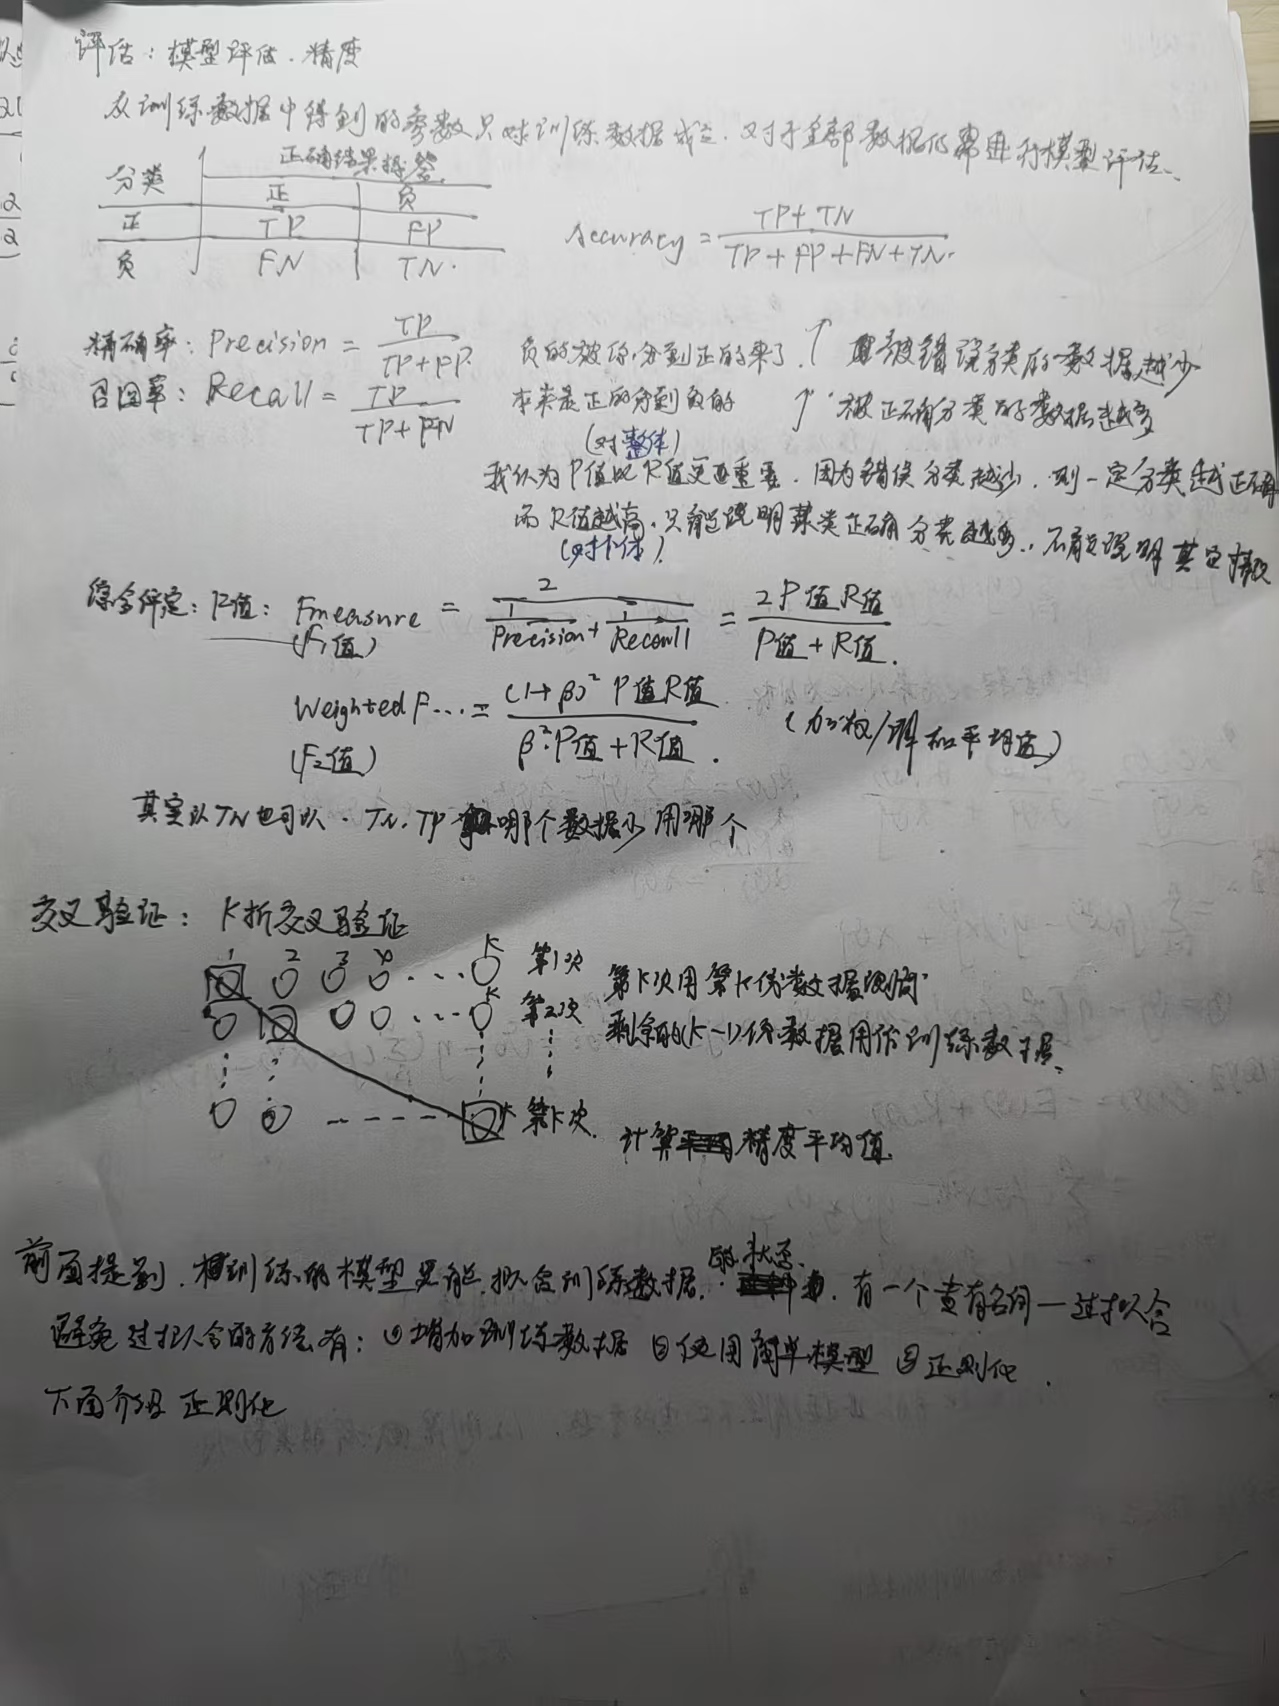 评估：模型评估．精度
从训练数据中得到的参数只对训练数据成立．对于全部数据仍需进行模型评估、
分类 正确结果标签
正 负
正 TP FP
负 FN TN.
Accuracy = (TP+TN)/(TP+FP+FN+TN).
精确率：Precision = TP/(TP+FP) 负的被你分到正的来了．↑ 被错误分类的数据越少
召回率：Recall = TP/(TP+FN) 本来是正的分到负的 ↑ 被正确分类的数据越多
(对整体)
我认为P值比R值更重要．因为错误分类越少．则一定分类越正确
而R值越高，只能说明某类正确分类越多，不能说明其它
(对个体)
综合评定：F值：Fmeasure = 2/(1/Precision + 1/Recall) = 2P值R值/(P值+R值).
(F₁值)
Weighted F... = (1+β)² P值R值/(β²·P值+R值). (加权/调和平均值)
(F₂值)
其实以TN也可以．TN．TP 哪个数据少用哪个
交叉验证：K折交叉验证
1 2 3 4 ... K 第1次
K 第2次
K 第K次.
第K次用第K份数据测试
剩余的(K-1)份数据用作训练数据、
计算精度平均值.
的状态、
前面提到．训练的模型只能拟合训练数据．有一个专有名词—过拟合
避免过拟合的方法有：①增加训练数据 ②使用简单模型 ③正则化．
下面介绍正则化